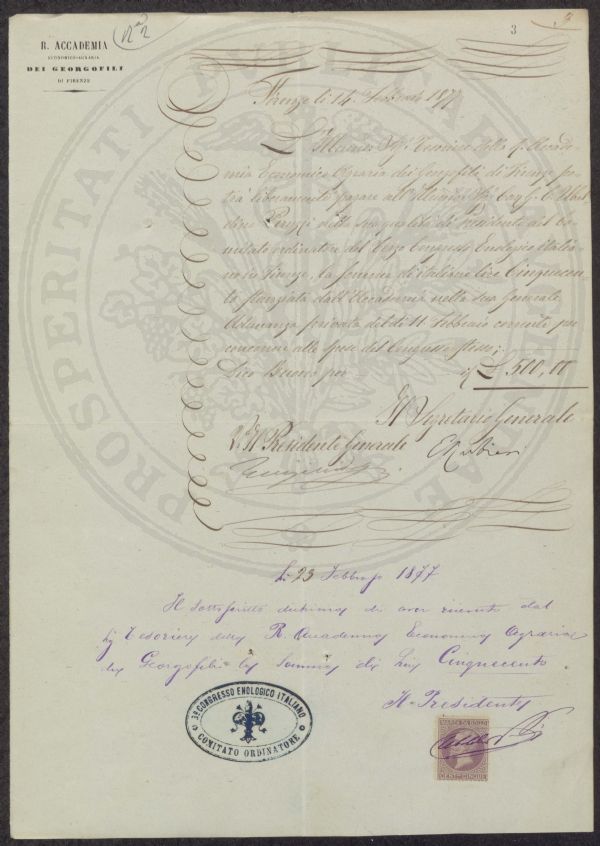 12
3
R. ACCADEMIA
ECONOMICO-AGRARIA
DEI GEORGOFILI
DI FIRENZE
PROSPERITATI PUBLICAE AUGENDAE
Firenze li 14. Febbraio 1877
Il Tesoriere della R. Accade-
mia Economico Agraria dei Georgofili di Firenze po-
trà liberamente pagare all' Ubal-
dino Peruzzi nella sua qualità di Presidente del Co-
mitato ordinatore del terzo Congresso Enologico Italia-
no in Firenze, la somma di italiane lire Cinquecen-
to stanziata dall'Accademia nella sua Generale
Adunanza privata del dì 11 Febbraio corrente per
concorrere alle spese del Congresso stesso;
Dico Buono per £ 500,00
Il Segretario Generale
V. Il Presidente Generale
Li 23 Febbrajo 1877
Il sottoscritto dichiara di aver ricevuto dal
Sig Tesoriere della R. Accademia Economico Agraria
dei Georgofili la somma di Lire Cinquecento
Il Presidente
3º CONGRESSO ENOLOGICO ITALIANO
COMITATO ORDINATORE
MARCA DA BOLLO
CENT. CINQUE